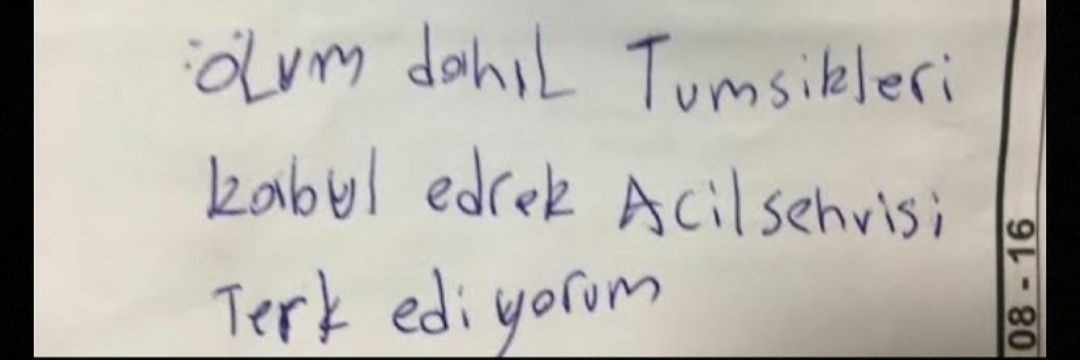 ölum dahıl Tumsikleri
kabul edrek Acilsehvisi
Terk ediyorum
08 - 16